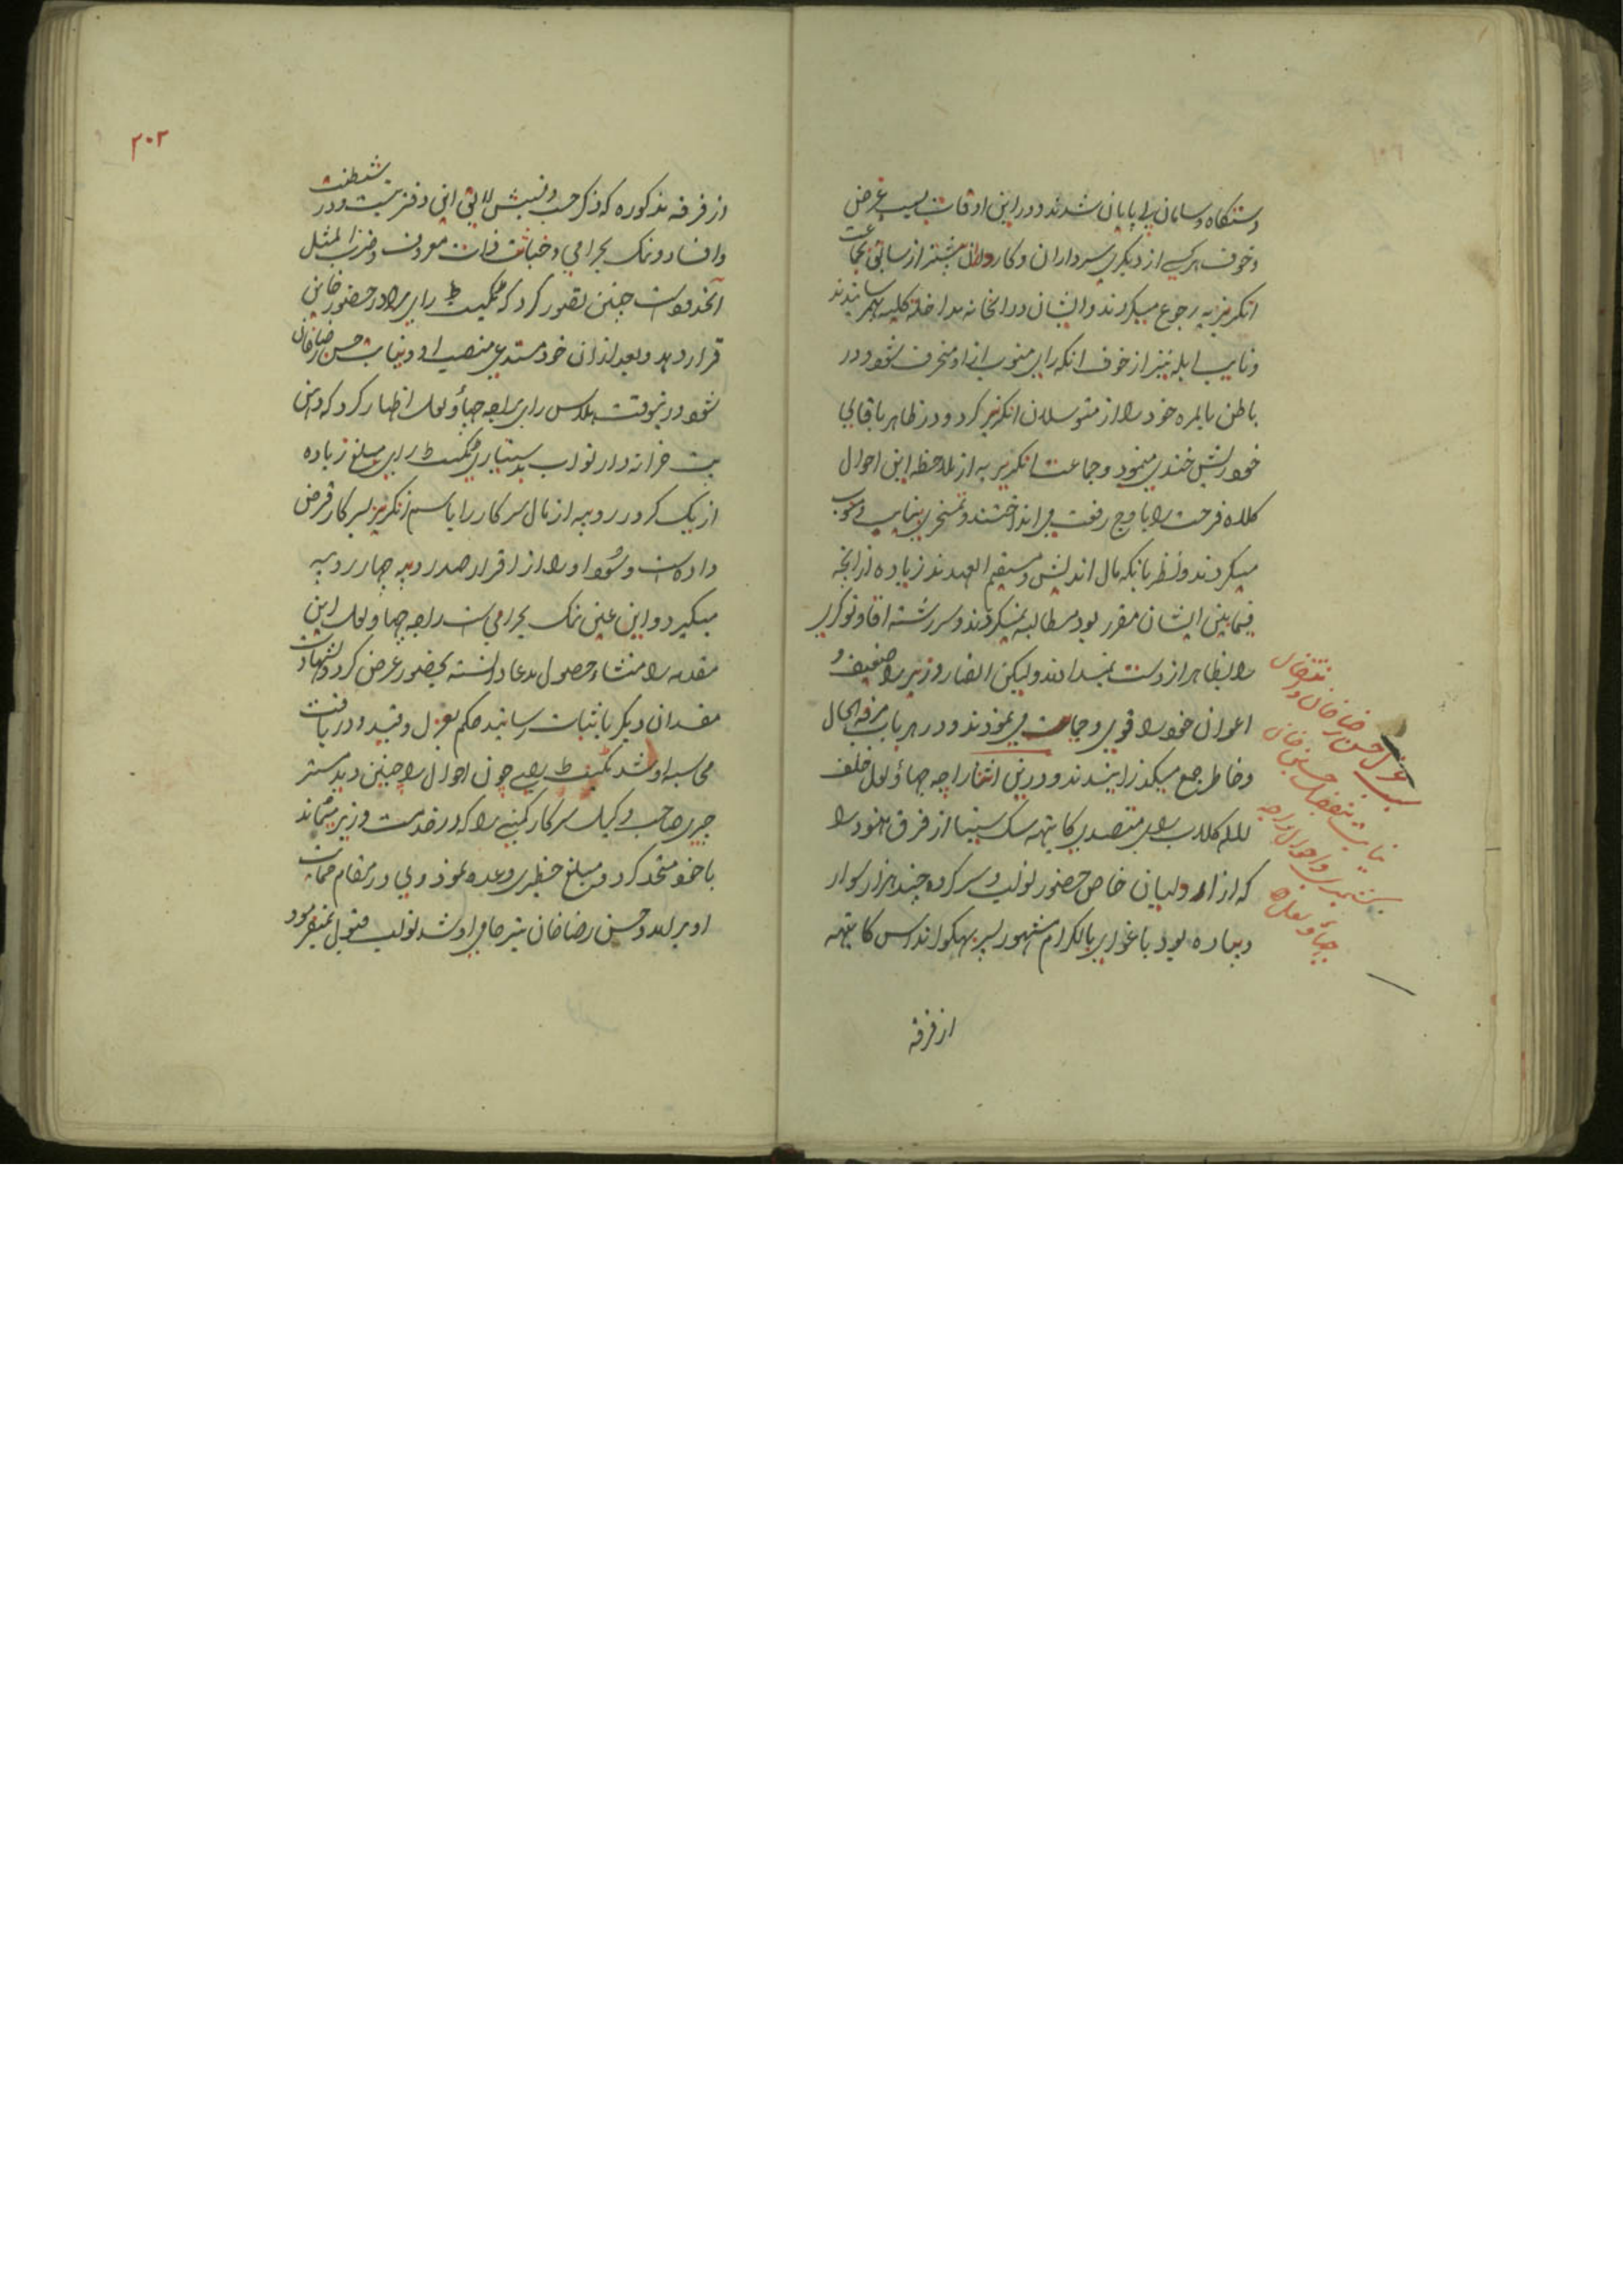 دستگاه و سامان بی پایان شدند و در این اوقات بسبب غرض
و خوف هر یکی از دیگری سرداران و کارداران بیشتر از سابق بجماعت
انگریزیه رجوع میکردند و ایشان در آنخانه مداخلهٔ کلیه بهم رسانیدند
و نایب ابله نیز از خوف آنکه رای منوب از او منحرف نشود در
باطن بالمره خود را از متوسلان انگریز کرد و در ظاهر با قالی
خود ریش خندی مینمود و جماعت انگریزیه از ملاحظه این احوال
کلاه فرحت را باوج رفعت می انداختند و تمسخر بنایب و منوب
میکردند و نظر بانکه مآل اندیش و مستقیم العهدند زیاده از آنچه
فیمابین ایشان مقرر بود مطالبه نمیکردند و سررشته آقا و نوکری
را بظاهر از دست نمیدادند ولیکن انصار وزیر را ضعیف و
اعوان خود را قوی و حمایت می نمودند و در هر باب مرفه الحال
و خاطر جمع میگذرانیدند و در این اثنا راجه جهاؤ لعل خلف
لاله کلاب رای متصدی کایتهه سکسینا از فرق هنود را
که از اردلیان خاص حضور نواب و سرکرده چند هزار سوار
و پیاده بود باغوای بالکرام مشهور بپسر بهکوانداس کایتهه
از فرقه
سبب عزل حسن رضا خان و
نیابت تفضل حسین خان
کشمیری و احوال راجه
جهاؤ لعل
۲۰۲
از فرقه مذکوره که ذکر حسب و نسبش لایق این دفتر نیست و در شیطنت
و افساد و نمک بحرامی و خباثت ذات معروف و ضرب المثل
آنحدود است چنین تصور کرد که تکیت رای را در حضور خاین
قرار دهد و بعد از آن خود مستدعی منصب او و نیابت حسن رضا خان
شود در نیوقت بلداس رای براجه جهاؤ لعل اظهار کرد که
خزانه دار نواب بدستیاری تکیت رای مبلغ زیاده
از یک کرور روپیه از مال سرکار را باسم انگریز بسرکار قرض
داده است و سود او را از قرار صد روپیه چهار روپیه
میگیرد و این عین نمک بحرامی است راجه جهاو لعل این
مقدمه را منشاء حصول مدعا دانسته بحضور عرض کرد و بشهادت
مفسدان دیگر باثبات رسانید حکم بعزل و قید و دریافت
محاسبه او شد تکیت رای چون احوال را چنین دید مستر
چری صاحب وکیل سرکار کمپنی را که در خدمت وزیر میماند
با خود متحد کرد و مبلغ خطیری وعده نمود وی در مقام حمایت
او برآمد و حسن رضا خان نیز حامی او شد نواب قبول نمیفرمود